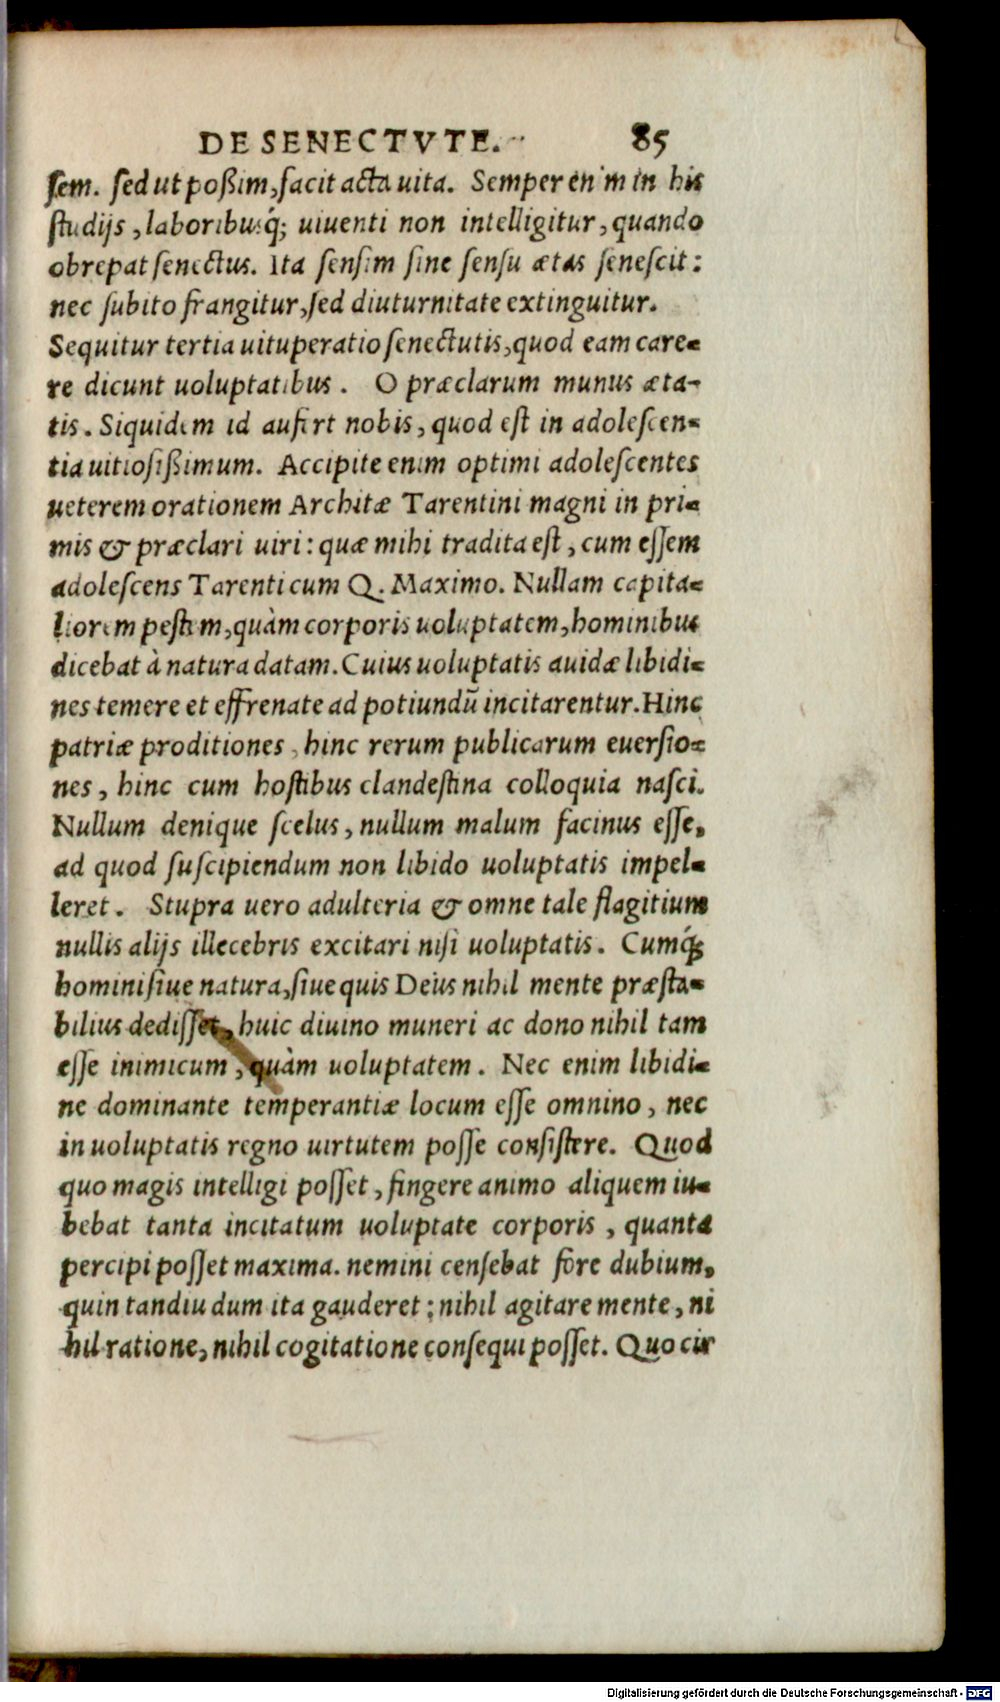 DE SENECTVTE. 85
sem. sed ut poßim, facit acta uita. Semper enim in his
studijs, laboribusq́; uiuenti non intelligitur, quando
obrepat senectus. Ita sensim sine sensu ætas senescit:
nec subito frangitur, sed diuturnitate extinguitur.
Sequitur tertia uituperatio senectutis, quod eam care-
re dicunt uoluptatibus. O præclarum munus æta-
tis. Siquidem id aufert nobis, quod est in adolescen-
tia uitiosißimum. Accipite enim optimi adolescentes
ueterem orationem Architæ Tarentini magni in pri-
mis & præclari uiri: quæ mihi tradita est, cum essem
adolescens Tarenti cum Q. Maximo. Nullam capita-
liorem pestem, quàm corporis uoluptatem, hominibus
dicebat à natura datam. Cuius uoluptatis auidæ libidi-
nes temere et effrenate ad potiundũ incitarentur. Hinc
patriæ proditiones, hinc rerum publicarum euersio-
nes, hinc cum hostibus clandestina colloquia nasci.
Nullum denique scelus, nullum malum facinus esse,
ad quod suscipiendum non libido uoluptatis impel-
leret. Stupra uero adulteria & omne tale flagitium
nullis alijs illecebris excitari nisi uoluptatis. Cumq́;
homini siue natura, siue quis Deus nihil mente præsta-
bilius dedisset, huic diuino muneri ac dono nihil tam
esse inimicum, quàm uoluptatem. Nec enim libidi-
ne dominante temperantiæ locum esse omnino, nec
in uoluptatis regno uirtutem posse consistere. Quod
quo magis intelligi posset, fingere animo aliquem iu-
bebat tanta incitatum uoluptate corporis, quanta
percipi posset maxima. nemini censebat fore dubium,
quin tandiu dum ita gauderet; nihil agitare mente, ni
hil ratione, nihil cogitatione consequi posset. Quo cir
Digitalisierung gefördert durch die Deutsche Forschungsgemeinschaft - DFG